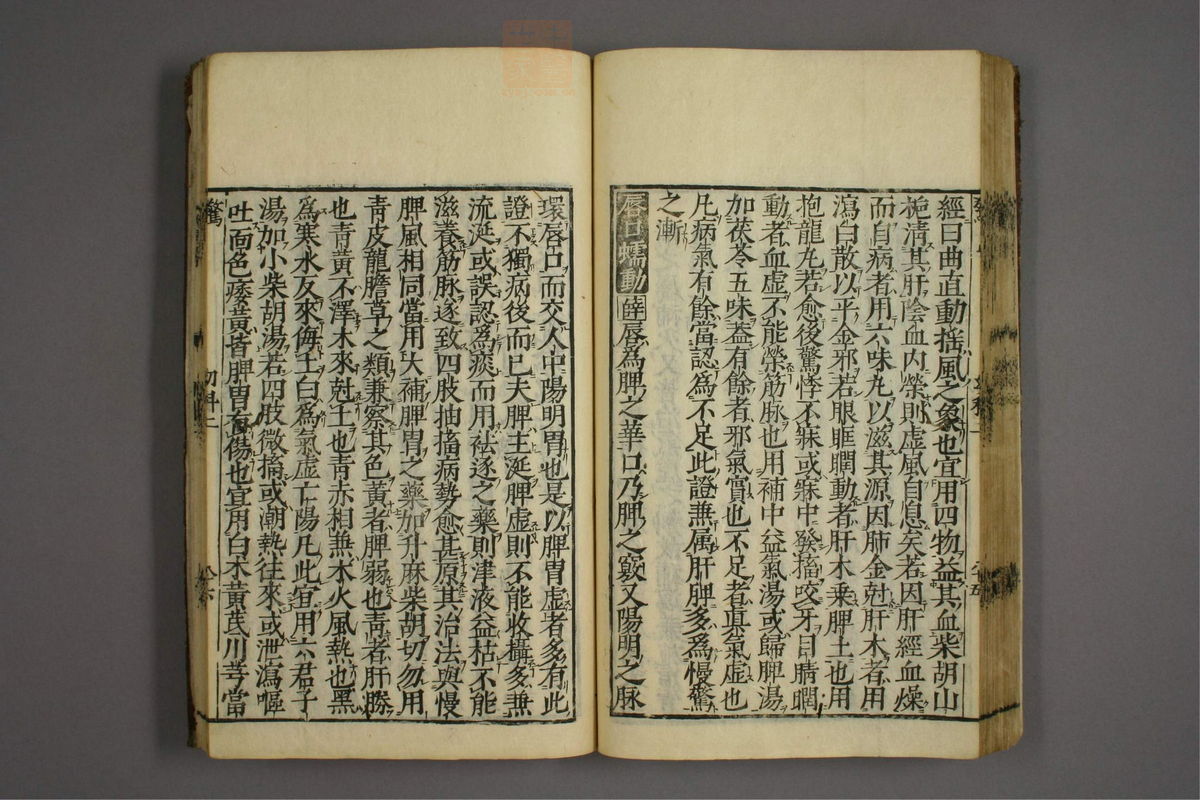 經曰曲直動搖風之象也宜用四物益其血柴胡山
梔清其肝陰血內榮則虛風自息矣若因肝經血燥
而自病者用六味丸以滋其源因肺金尅肝木者用
瀉白散以平金邪若眼眶瞤動者肝木乗脾土也用
抱龍丸若愈後驚悸不寐或寐中發搐咬牙目睛瞤
動者血虛不能榮筋脉也用補中益氣湯或歸脾湯
加茯苓五味蓋有餘者邪氣實也不足者真氣虛也
凡病氣有餘當認爲不足此證兼属肝脾多爲慢驚
之漸
唇口蠕動 薛唇爲脾之華口乃脾之竅又陽明之脉
環唇口而交人中陽明胃也是以脾胃虛者多有此
證不獨病後而已夫脾主涎脾虛則不能收攝多兼
流涎或誤認爲痰而用祛逐之藥則津液益枯不能
滋養筋脉遂致四肢抽搐病勢愈甚原其治法與慢
脾風相同當用大補脾胃之藥加升麻柴胡切勿用
青皮龍膽草之類兼察其色黃者脾弱也青者肝勝
也青黃不澤木來尅土也青赤相兼木火風熱也黑
爲寒水反來侮土白爲氣虛亡陽凡此宜用六君子
湯加小柴胡湯若四肢微搐或潮熱往來或泄瀉嘔
吐面色痿黃皆脾胃有傷也宜用白朮黃芪川芎當
驚
幼科三